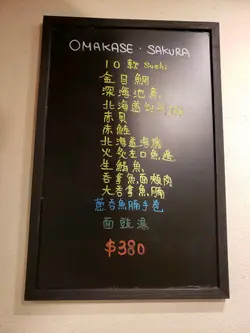 OMAKASE · SAKURA
10 款 Sushi
金目鯛
深海池魚
北海道
赤貝
赤蝦
北海道海膽
火炙左口魚邊
生鯖魚
吞拿魚面頰肉
大吞拿魚腩
蔥吞魚腩手卷
麵豉湯
$380